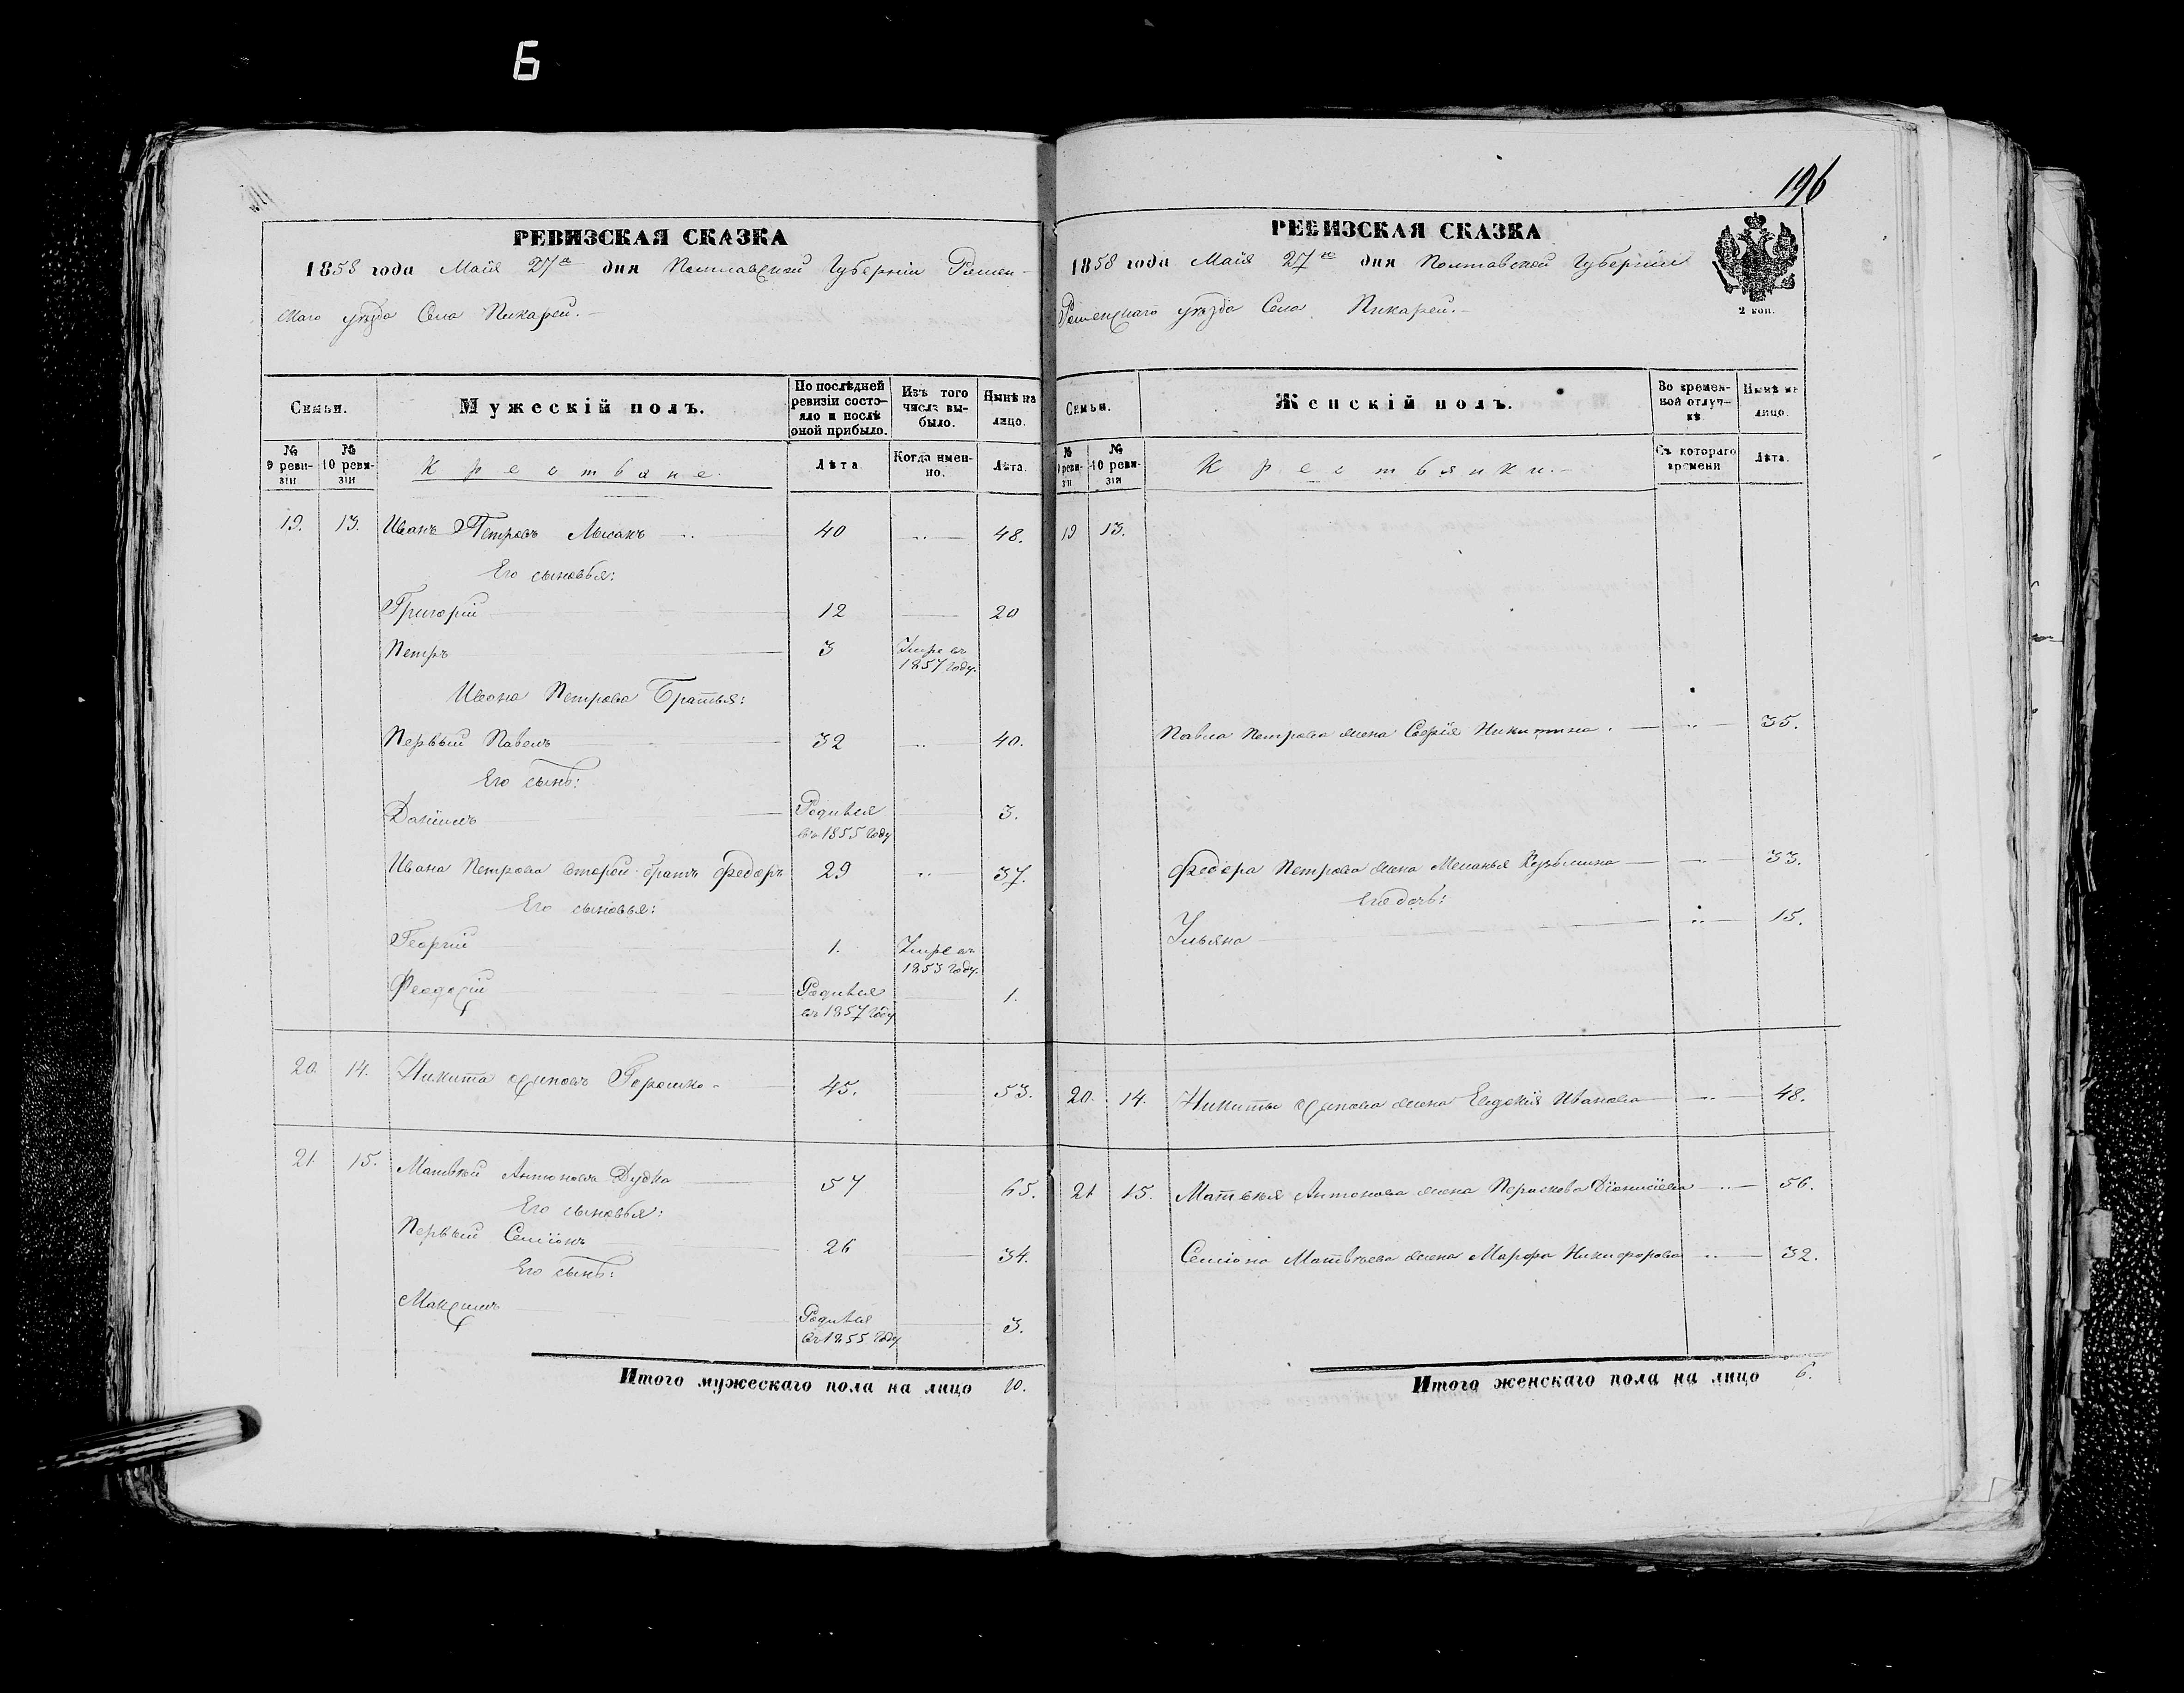 6
196
РЕВИЗСКАЯ СКАЗКА
1858 года Мая 27го дня Полтавской Губерніи Ромен-
скаго уѣзда Села Пикарей.
Семьи. Мужескій полъ. По послѣдней ревизіи состояло и послѣ оной прибыло. Изъ того числа выбыло. Нынѣ на лицо.
№ 9 ревизіи № 10 ревизіи Крестьяне. Лѣта Когда именно. Лѣта.
19. 13. Иванъ Петровъ 40 48.
Его сыновья:
Григорій 12 20
Петръ 3 Умре въ 1857 году.
Ивана Петрова Братья:
Первый Павелъ 32 40.
Его сынъ:
Даніилъ Родился въ 1855 году 3.
Ивана Петрова второй братъ Федоръ 29 37.
Его сыновья:
Георгій 1. Умре въ 1853 году.
Феодосій Родился въ 1857 году 1.
20. 14. Никита Осиповъ Горошко 45. 53.
21. 15. Матвѣй Антоновъ Дудка 57 65.
Его сыновья:
Первый Семіонъ 26 34.
Его сынъ:
Максимъ Родился въ 1855 году 3.
Итого мужескаго пола на лицо 10.
РЕВИЗСКАЯ СКАЗКА
1858 года Мая 27го дня Полтавской Губерніи
Роменскаго уѣзда Села Пикарей.
2 коп.
Семьи. Женскій полъ. Во временной отлучкѣ Нынѣ на лицо.
№ 9 ревизіи № 10 ревизіи Крестьянки. Съ котораго времени Лѣта.
19 13.
Павла Петрова жена Софія Никитина. 35.
Федора Петрова жена Меланья Кузьмина 33.
Его дочь:
Ульяна 15.
20. 14. Никиты Осипова жена Евдокія Иванова 48.
21 15. Матвѣя Антонова жена Парасковья Діонисіева 56.
Семіона Матвѣева жена Марфа Никифорова 32.
Итого женскаго пола на лицо 6.